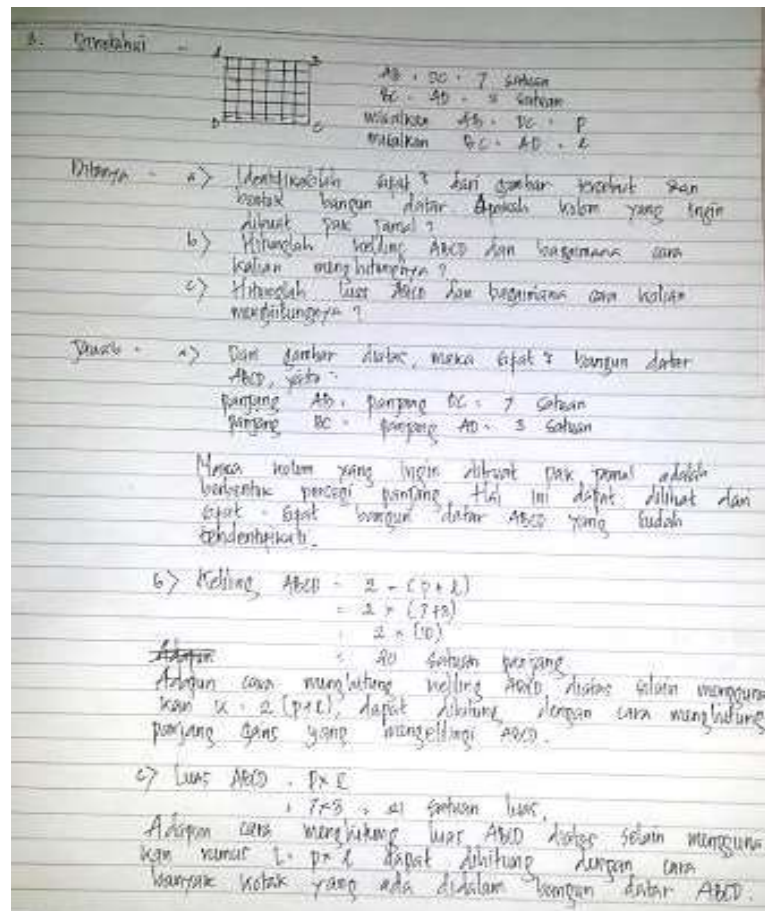 3. Diketahui -
A B
D C
AB = DC = 7 satuan
BC = AD = 3 satuan
misalkan AB = DC = p
misalkan BC = AD = l
Ditanya - a) Identifikasilah sifat² dari gambar tersebut dan
bentuk bangun datar Apakah kolam yang ingin
dibuat pak Jamal ?
b) Hitunglah keliling ABCD dan bagaimana cara
kalian menghitungnya ?
c) Hitunglah luas ABCD dan bagaimana cara kalian
menghitungnya ?
Jawab - a) Dari gambar diatas, maka sifat² bangun datar
ABCD, yaitu :
panjang AB = panjang DC = 7 satuan
panjang BC = panjang AD = 3 satuan
Maka kolam yang ingin dibuat pak Jamal adalah
berbentuk persegi panjang. Hal ini dapat dilihat dari
sifat - sifat bangun datar ABCD yang sudah
b) Keliling ABCD = 2 × (p + l)
= 2 × (7+3)
= 2 × (10)
Adapun = 20 satuan panjang
Adapun cara menghitung keliling ABCD diatas selain mengguna
kan K = 2 (p+l), dapat dihitung dengan cara menghitung
panjang garis yang mengelilingi ABCD.
c) Luas ABCD = p × l
= 7×3 = 21 satuan luas.
Adapun cara menghitung luas ABCD diatas selain mengguna
kan rumus L = p × l dapat dihitung dengan cara
banyak kotak yang ada didalam bangun datar ABCD.